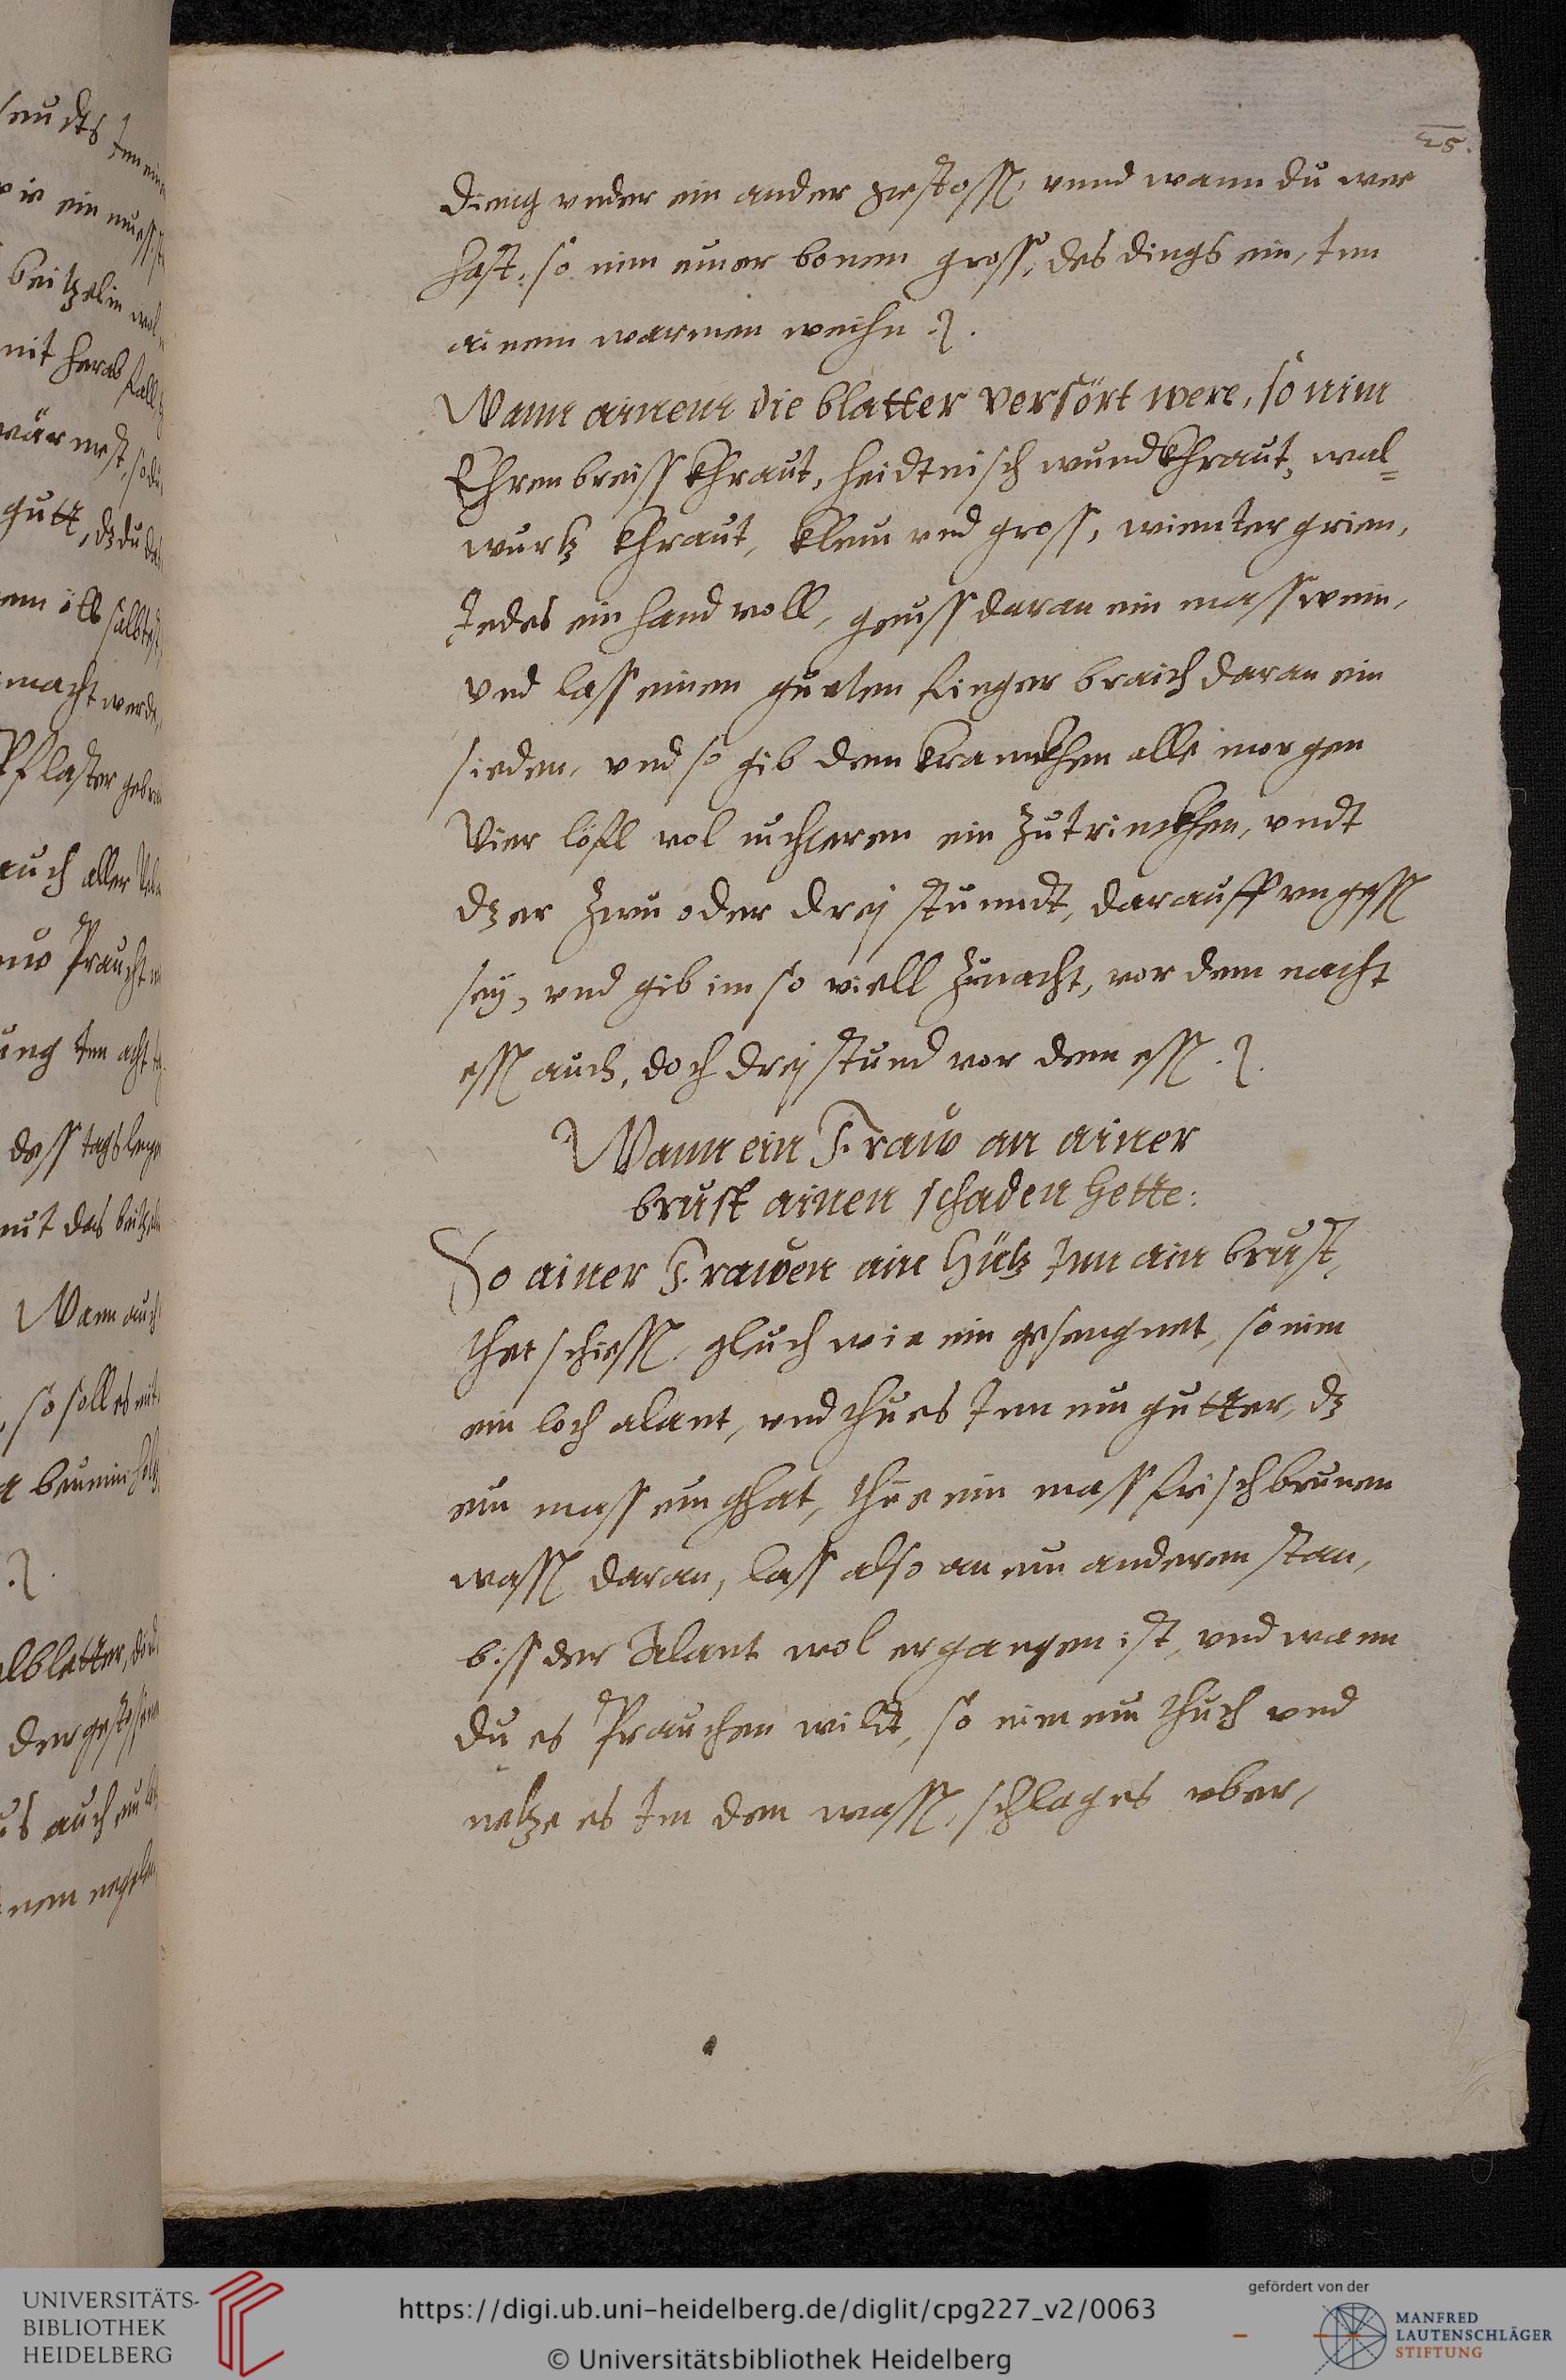 25.
dinng vnder ein ander zerstoss, vnnd wann du wee
hast, so nim einer bonen gross, des dings ein, Inn
ainem warmen weihn.
Wann ainem die blatter versört were, so nim
Ehrenbreiss khraut, heidtnisch wundkhraut, wal-
wurtz khraut, klein vnd gross, winntergrien,
Jedes ein hand voll, geuss daran ein mass wein,
vnd lass einen gueten finger braich daran ein
sieden, vnd so gib dem kranckhen alle morgen
Vier löfl vol nichteren ein Zutrinckhen, vndt
dz er Zwu oder drej stunndt, darauff vngess
sey, vnd gib im so viell Zunacht, vor dem nacht
ess auch, doch drej stund vor dem ess.
Wann ein Fraw an ainer
brust ainen schaden hette:
So ainer Frawen ain hütz Inn ain brust,
thet schiess, gleich wie ein gesengnet, so nim
ein loch alant, vnd thu es Inn ein gutter, dz
ein mass ein ghat, thue ein mass frisch brunnen
wass daran, lass also an ein anderen stan,
biss der Alant wol ergangen ist, vnd wann
du es Prauchen wilt, so nim ein thuch vnd
netze es Im dem wass, schlag es vber,
UNIVERSITÄTS-
BIBLIOTHEK
HEIDELBERG
https://digi.ub.uni-heidelberg.de/diglit/cpg227_v2/0063
© Universitätsbibliothek Heidelberg
gefördert von der
MANFRED
LAUTENSCHLÄGER
STIFTUNG